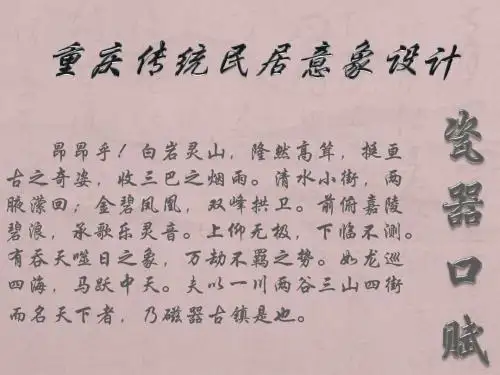 重庆传统民居意象设计
昂昂乎！白岩灵山，隆然高耸，挺亘
古之奇姿，收三巴之烟雨。清水小街，两
腋潆回；金碧凤凰，双峰拱卫。前俯嘉陵
碧浪，承歌乐灵音。上仰无极，下临不测。
有吞天噬日之象，万劫不羁之势。如龙巡
四海，马跃中天。夫以一川两谷三山四街
而名天下者，乃磁器古镇是也。
瓷器口赋